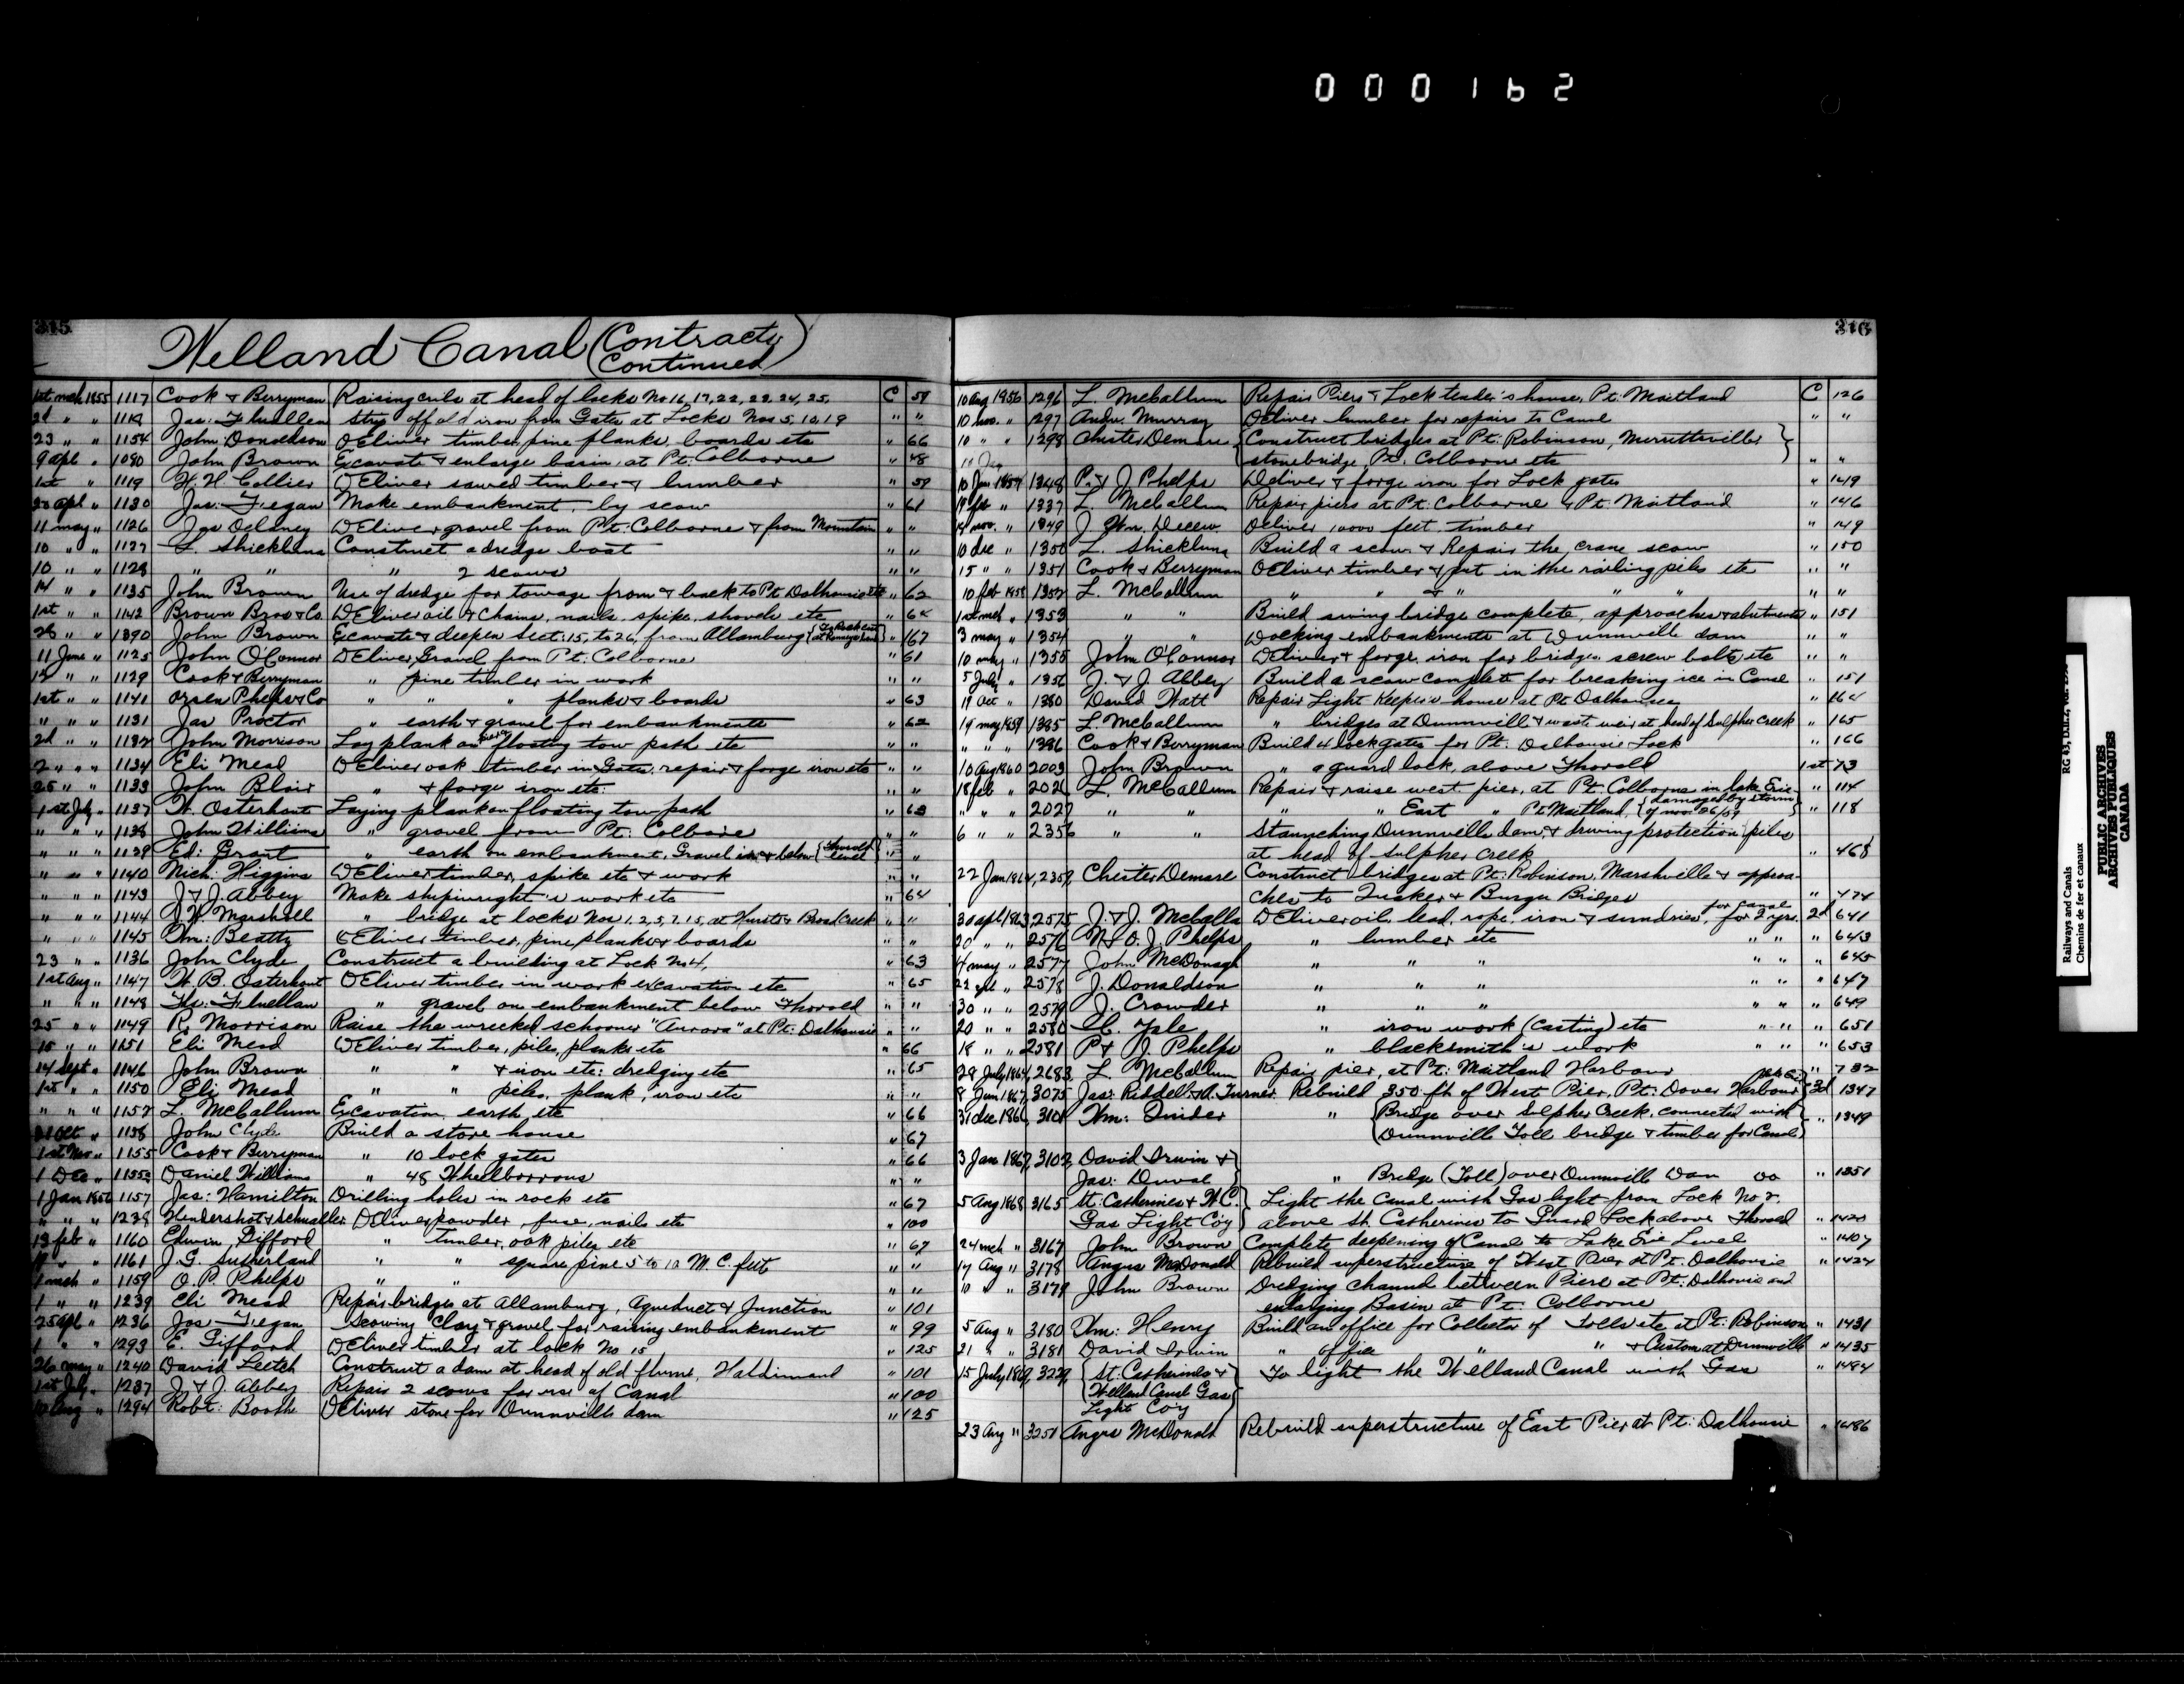 000162
315
Welland Canal (Contracts
Continued)
1st mch 1855 1117 Cook & Berryman Raising curb at head of locks No 16, 17, 22, 23, 24, 25, C 59
2d " " 1118 Jas: Fluellen Strip off old iron from Gates at Locks Nos 5, 10, 19 " "
23 " " 1154 John Donaldson DEliver timber, pine planks, boards etc " 66
9 apl " 1080 John Brown Excavate & enlarge basin, at Pt. Colborne " 48
1st " 1119 H. H. Collier DEliver sawed timber & lumber " 59
30 apl " 1130 Jas: Fegan Make embankment, by scow " 61
11 may " 1126 Jas Delaney DEliver gravel from Pt. Colborne & from Mountain " "
10 " " 1127 L. Shickluna Construct a dredge boat " "
10 " " 1128 " " " 2 scows " "
14 " " 1135 John Brown Use of dredge for towage from & back to Pt Dalhousie etc " 62
1st " " 1142 Brown Bros & Co. DEliver oil & Chains, nails, spike, shovels etc " 64
26 " " 1390 John Brown Excavate & deepen Sect: 15, to 26, from Allanburg " 167
11 June " 1125 John O'Connor DEliver Gravel from Pt: Colborne " 61
12 " " 1129 Cook & Berryman " pine timber in work " "
1st " " 1141 Orsen Phelps & Co " " " planks & boards " 63
" " " 1131 Jas Proctor " earth & gravel for embankments " 62
2d " " 1132 John Morrison Lay plank on floating tow path etc " "
2 " " " 1134 Eli Mead DEliver oak timber in Gates, repair & forge iron etc " "
25 " " 1133 John Blair " & forge iron etc. " "
1st July " 1137 W. Osterhout Laying plank on floating tow path " 63
" " " 1138 John Williams " gravel from Pt: Colborne " "
" " " 1139 Ed: Grant " earth on embankment, Gravel in & below {Thorold level} " "
" " " 1140 Nich: Higgins DEliver timber, spike etc & work " "
" " " 1143 J & J. Abbey Make shipwright's work etc " 64
" " " 1144 W. Marshall " bridge at locks Nos 1, 2, 5, 7, 15, at Hursts & Broad Creek " "
" " " 1145 Wm: Beatty DEliver timber, pine planks & boards " "
23 " " 1136 John Clyde Construct a building at Lock No 4, " 63
1st Aug " 1147 W. B. Osterhout DEliver timber in work excavation etc " 65
" " " 1148 Fluellan " gravel on embankment below Thorold " "
25 " " 1149 R. Morrison Raise the wrecked schooner "Aurora" at Pt: Dalhousie " "
15 " " 1151 Eli Mead DEliver timber, piles, planks etc " 66
14 Sept " 1146 John Brown " " & iron etc: dredging etc " 65
1st " " 1150 Eli Mead " " piles, plank, iron etc " "
" " " 1152 L. McCallum Excavation earth, etc " 66
31 Oct " 1158 John Clyde Build a store house " 67
1st Nov " 1155 Cook & Berryman " 10 lock gates " 66
1 Dec " 1155a Daniel Williams " 48 Wheelbarrows " "
1 Jan 1856 1157 Jas: Hamilton Drilling holes in rock etc " 67
" " " 1238 Hendershot & Schualler DEliver powder, fuse, nails etc " 100
13 feb " 1160 Edwin Gifford " timber, oak piles etc " 67
" " 1161 J. G. Sutherland " " square pine 5 to 10 M. C. feet " "
1 mch " 1159 O. P. Phelps " " " "
1 " " 1239 Eli Mead Repair bridges at Allanburg, Aqueduct & Junction " 101
25 apl " 1236 Jas Fegan Scowing clay & gravel for raising embankment " 99
1 " " 1293 E. Gifford DEliver timber at lock No 15 " 125
26 may " 1240 David Leitch Construct a dam at head of old flume, Haldimand " 101
1st July " 1237 J & J. Abbey Repair 2 scows for use of Canal " 100
Aug " 1294 Robt: Booth DEliver stone for Dunnville dam " 125
316
10 Aug 1856 1296 L. McCallum Repair Piers & Lock tender's house, Pt: Maitland C 126
10 nov. " 1297 Andw Murray Deliver lumber for repairs to Canal " "
10 " " 1298 Chester Demare {Construct bridges at Pt. Robinson, Merrittsville}
stonebridge, Pt. Colborne etc " "
10 Jan 1857 1348 P. & J. Phelps Deliver & forge iron for Lock gates " 149
19 feb " 1337 L. McCallum Repair piers at Pt. Colborne & Pt. Maitland " 146
14 nov. " 1349 J. Wm. Decew Deliver 10000 feet timber " 149
10 dec " 1350 L. Shickluna Build a scow & Repair the crane scow " 150
15 " " 1351 Cook & Berryman DEliver timber & put in the railing piles etc " "
10 feb 1858 1352 L. McCallum " " & " " " " "
1st mch " 1353 " " Build swing bridge complete, approaches & abutments " 151
3 may " 1354 " " Docking embankments at Dunnville dam " "
10 may " 1355 John O'Connor DEliver & forge iron for bridges, screw bolts etc " "
5 July " 1356 J. & J. Abbey Build a scow complete for breaking ice in Canal " 151
19 Oct " 1380 David Watt Repair Light Keeper's house at Pt Dalhousie " 164
14 may 1859 1385 L McCallum " bridges at Dunnville & waste weir at head of Sulpher Creek " 165
" " " 1386 Cook & Berryman Build 4 lock gates for Pt. Dalhousie Lock " 166
10 Aug 1860 2003 John Brown " a guard lock, above Thorold 1st 73
18 feb " 2026 L. McCallum Repair & raise west pier, at Pt. Colborne in lake Erie " 114
" " " 2027 " " " " East " Pt: Maitland, {damaged by storm of nov: 26/59} " 118
6 " " 2356 " " Staunching Dunnville dam, & driving protection piles
at head of Sulpher Creek " 468
22 Jan 1864, 2359, Chester Demare Construct bridges at Pt. Robinson, Marshville & approa-
ches to Tucker & Burger Bridges " 474
30 apl 1863, 2575 J. & J. McCalla DEliver oil, lead, rope, iron & sundries, for canal for 2 yrs. 2d 641
20 " " 2576 N & O. J. Phelps " lumber etc " " " 643
4 may " 2577 John McDonagh " " " " " " 645
22 apl " 2578 J. Donaldson " " " " " " 647
30 " " 2579 J. Crowder " " " " " " 649
20 " " 2580 C. Yale " iron work (casting) etc " " " 651
18 " " 2581 P & J. Phelps " blacksmith's work " " " 653
28 July 1864, 2683 L McCallum Repair pier, at Pt: Maitland Harbour " 732
8 Jan 1867, 3075 Jas: Riddell & A. Turner Rebuild 350 ft of West Pier, Pt: Dover Harbour 3d 1347
31 Dec 1866 3101 Wm: Dinder " {Bridge over Sulpher Creek, connected with " 1349
Dunnville Toll bridge & timber for Canal}
3 Jan 1867, 3102, David Irwin &
Jas: Duval " Bridge (Toll) over Dunnville Dam do " 1351
5 Aug 1868 3165 St: Catherines & W. C. Light the Canal with Gas light from Lock No 2.
Gas Light Coy above St. Catherines to Guard Lock above Thorold " 1420
24 mch " 3167 John Brown Complete deepening of Canal to Lake Erie Level " 1407
17 Aug " 3178 Angus McDonald Rebuild superstructure of West Pier at Pt. Dalhousie " 1424
10 " " 3179 John Brown Dredging channel between Piers at Pt: Dalhousie and
enlarging Basin at Pt. Colborne
5 Aug " 3180 Wm: Henry Build an office for Collector of Tolls etc at Pt: Robinson " 1431
21 " " 3181 David Irwin " office " " & Customs at Dunnville " 1435
15 July 1869, 3229, {St: Catherines & To light the Welland Canal with Gas " 1484
Welland Canal Gas
Light Coy
23 Aug " 3251 Angus McDonald Rebuild superstructure of East Pier at Pt: Dalhousie " 1486
Railways and Canals
Chemins de fer et canaux
PUBLIC ARCHIVES
ARCHIVES PUBLIQUES
CANADA